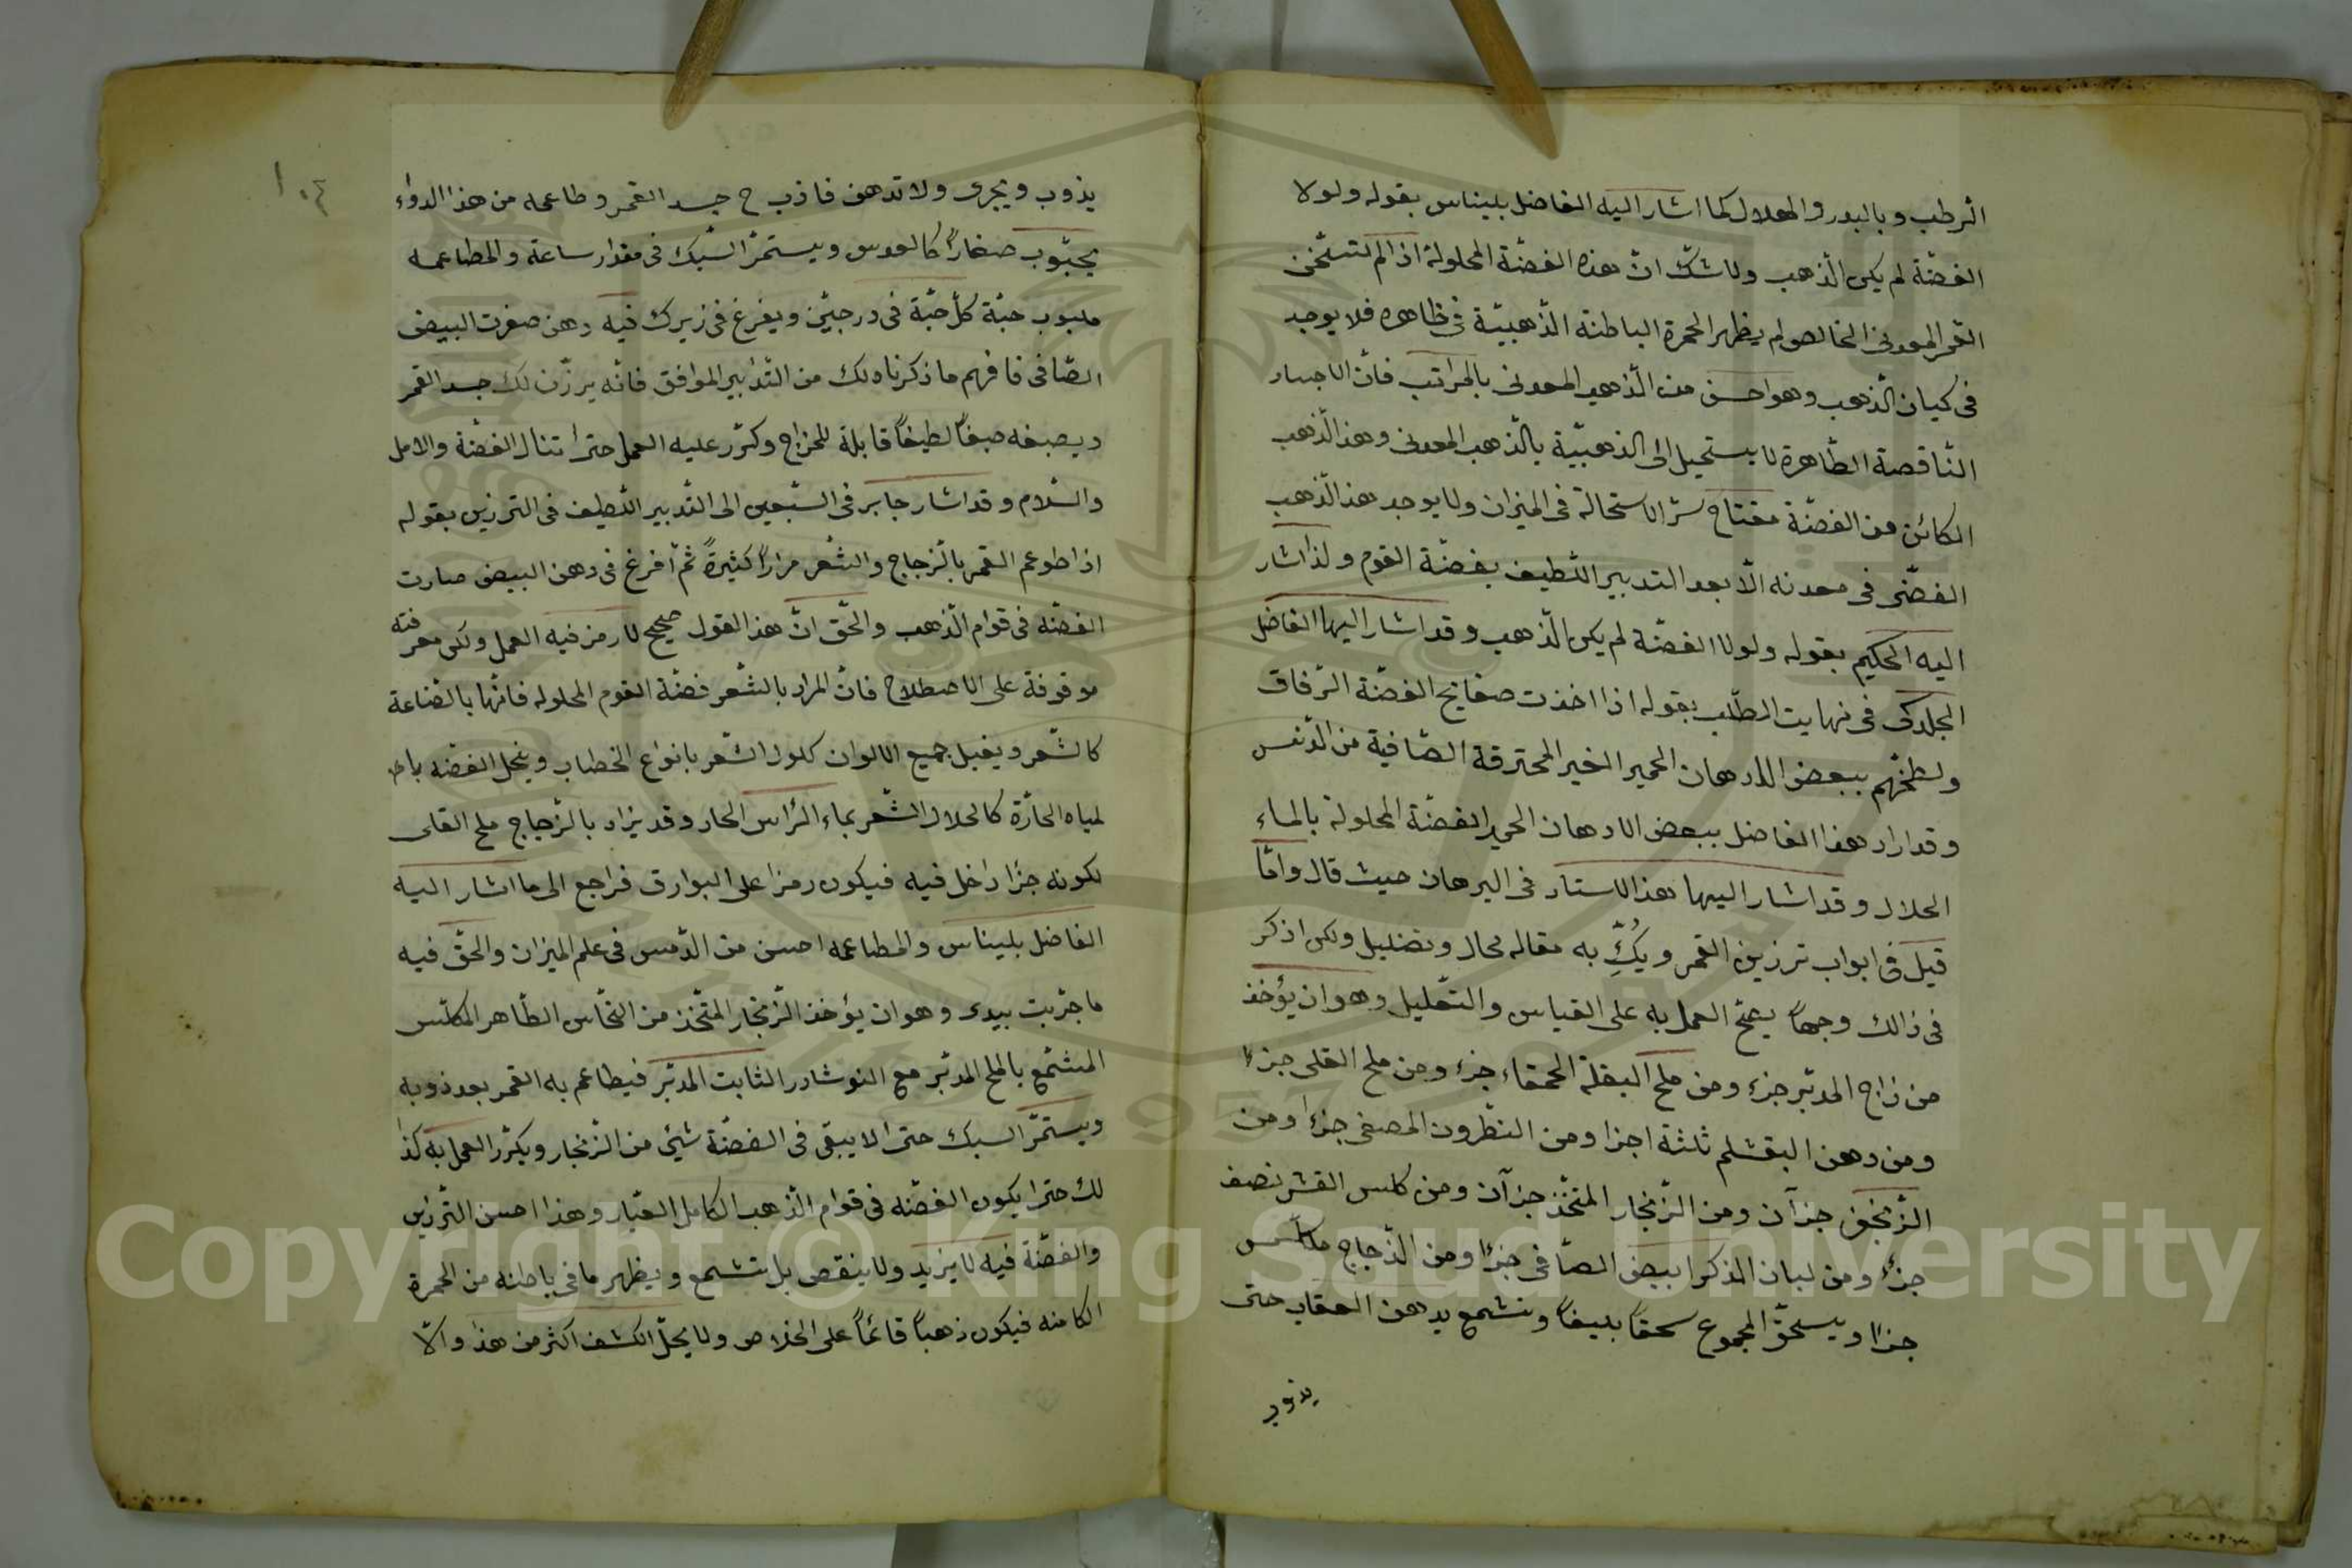 الرطب وبالبدر والهلال كما اشار اليه الفاضل بليناس بقوله ولولا
الفضّة لم يكن الذهب ولا شكّ انّ هذه الفضّة المحلولة اذا لم تستخن
القمر المعدنى الخالص ولم يظهر الحمرة الباطنة الذّهبيّة فى ظاهره فلا يوجد
فى كيان الذهب وهو احسن من الذّهب المعدنى بالمراتب فانّ الاجساد
النّاقصة الطّاهرة لا يستحيل الى الذهبيّة بالذّهب المعدنى وهذا الذّهب
الكائن من الفضّة مفتاح سرّ الاستحالة فى الميزان ولا يوجد هذا الذّهب
الفضّى فى معدنه الّا بعد التدبير اللّطيف بفضّة القوم ولذا اشار
اليه الحكيم بقوله ولولا الفضّة لم يكن الذّهب وقد اشار اليها الفاضل
الجلدكى فى نهايت الطّلب بقوله اذا اخذت صفايح الفضّة الرّقاق
ولطختهم ببعض الادهان الحمر الغير المحترقة الصّافية من الدّنس
وقد اراد هذا الفاضل ببعض الادهان الحمر الفضّة المحلولة بالماء
الحلال وقد اشار اليها هذا الاستاد فى البرهان حيث قال وامّا
قيل فى ابواب ترزين القمر به مقاله محال وتضليل ولكن اذكر
فى ذالك وجهاً يصحّ العمل به على القياس والتعليل وهو ان يؤخذ
من زاج المدبّر جزء ومن ملح البقلة الحمقاء جزء ومن ملح القلى جزءا
ومن دهن البقشلم ثلثة اجزا ومن النّطرون المصفى جزءا ومن
الزّنجفر جزآن ومن الزّنجار المتّخذ جزآن ومن كلس القشر نصف
جزء ومن لبان الذكر ابيض الصّافى جزءا ومن الزّجاج مكلّس
جزءا ويسحق المجموع سحقاً بليغاً وتشمع بدهن العقاب حتى
يذوب
١٠٤
يذوب ويجرى ولا تدهن فاذب ح جسد القمر وطاعمه من هذا الدواء
بحبّوب صغاراً كالعدس ويستمرّ السّبك فى مقدار ساعة والمطاعمه
حبّة كلّ حبّة فى درجتين ويفرغ فى زيرك فيه دهن صفرت البيض
الصّافى فافهم ما ذكرناه لك من التّدابير الموافق فانّه يرزّن لك جسد القمر
ويصبغه صبغاً لطيفاً قابلة للمزاج وكرّر عليه العمل حتى تنال الفضّة والامل
والسّلام وقد اشار جابر فى السّبعين الى التّدبير اللّطيف فى الترزين بقوله
اذا طوعم القمر بالزجاج والشعر مراراً كثيرةً ثمّ افرغ فى دهن البيض صارت
الفضّة فى قوام الذّهب والحّق انّ هذا القول صحيح لا رمز فيه العمل ولكن معرفته
موقوفة على الاصطلاح فانّ المراد بالشّعر فضّة القوم المحلوله فانّها بالصّناعة
كالشّعر ويقبل جميع الالوان كلون الشّعر بانواع الخضاب وينحل الفضّه
لمياه الحارّة كالحلال الشّعر بماء الرّاس الحار وقد يزاد بالزّجاج ملح القلى
لكونه جزءا داخل فيه فيكون رمزا على البوارق فراجع الى ما اشار اليه
الفاضل بليناس والمطاعمه احسن من الدّمس فى علم الميزان والحقّ فيه
ما جرّبت بيدى وهو ان يؤخذ الزّنجار المتّخذ من النحّاس الطّاهر المكلّس
المشمّع بالملح المدبّر مع النوشادر الثابت المدبّر فيطاعم به القمر بعد ذوبه
ويستمرّ السبك حتى الا يبقى فى الفضّة شيئ من الزّنجار ويكرّر العمل به كذا
لك حترا يكون الفضّة فى قوام الذّهب الكامل العيّار وهذا احسن التّرزين
والفضّة فيه لا يزيد ولا ينقص بل تشمع ويظهر ما فى باطنه من الحمرة
الكامنه فيكون ذهباً قائماً على الخلاص ولا يحلّ الكشف اكثر من هذا والّا
Copyright © King Saud University
1957